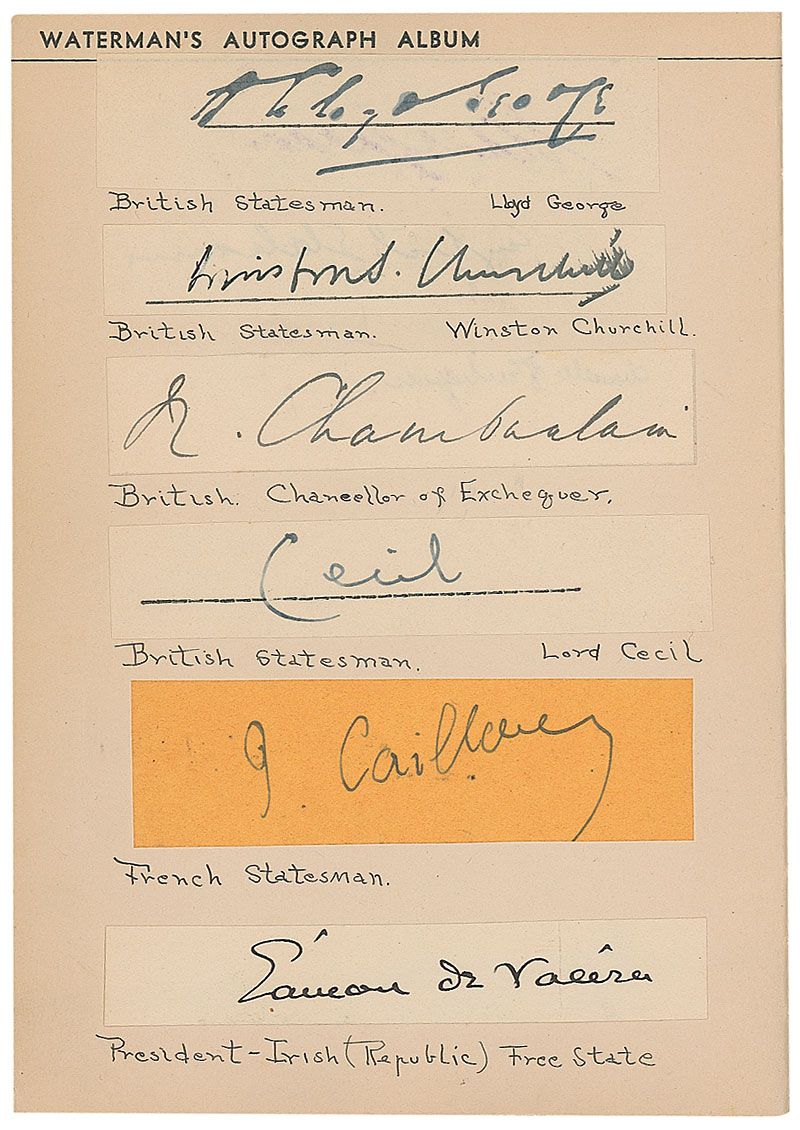 WATERMAN'S AUTOGRAPH ALBUM
D Lloyd George
British Statesman. Lloyd George
Winston S. Churchill
British Statesman. Winston Churchill.
N. Chamberlain
British. Chancellor of Exchequer.
Cecil
British Statesman. Lord Cecil
J. Caillaux
French Statesman.
Éamon de Valéra
President-Irish (Republic) Free State